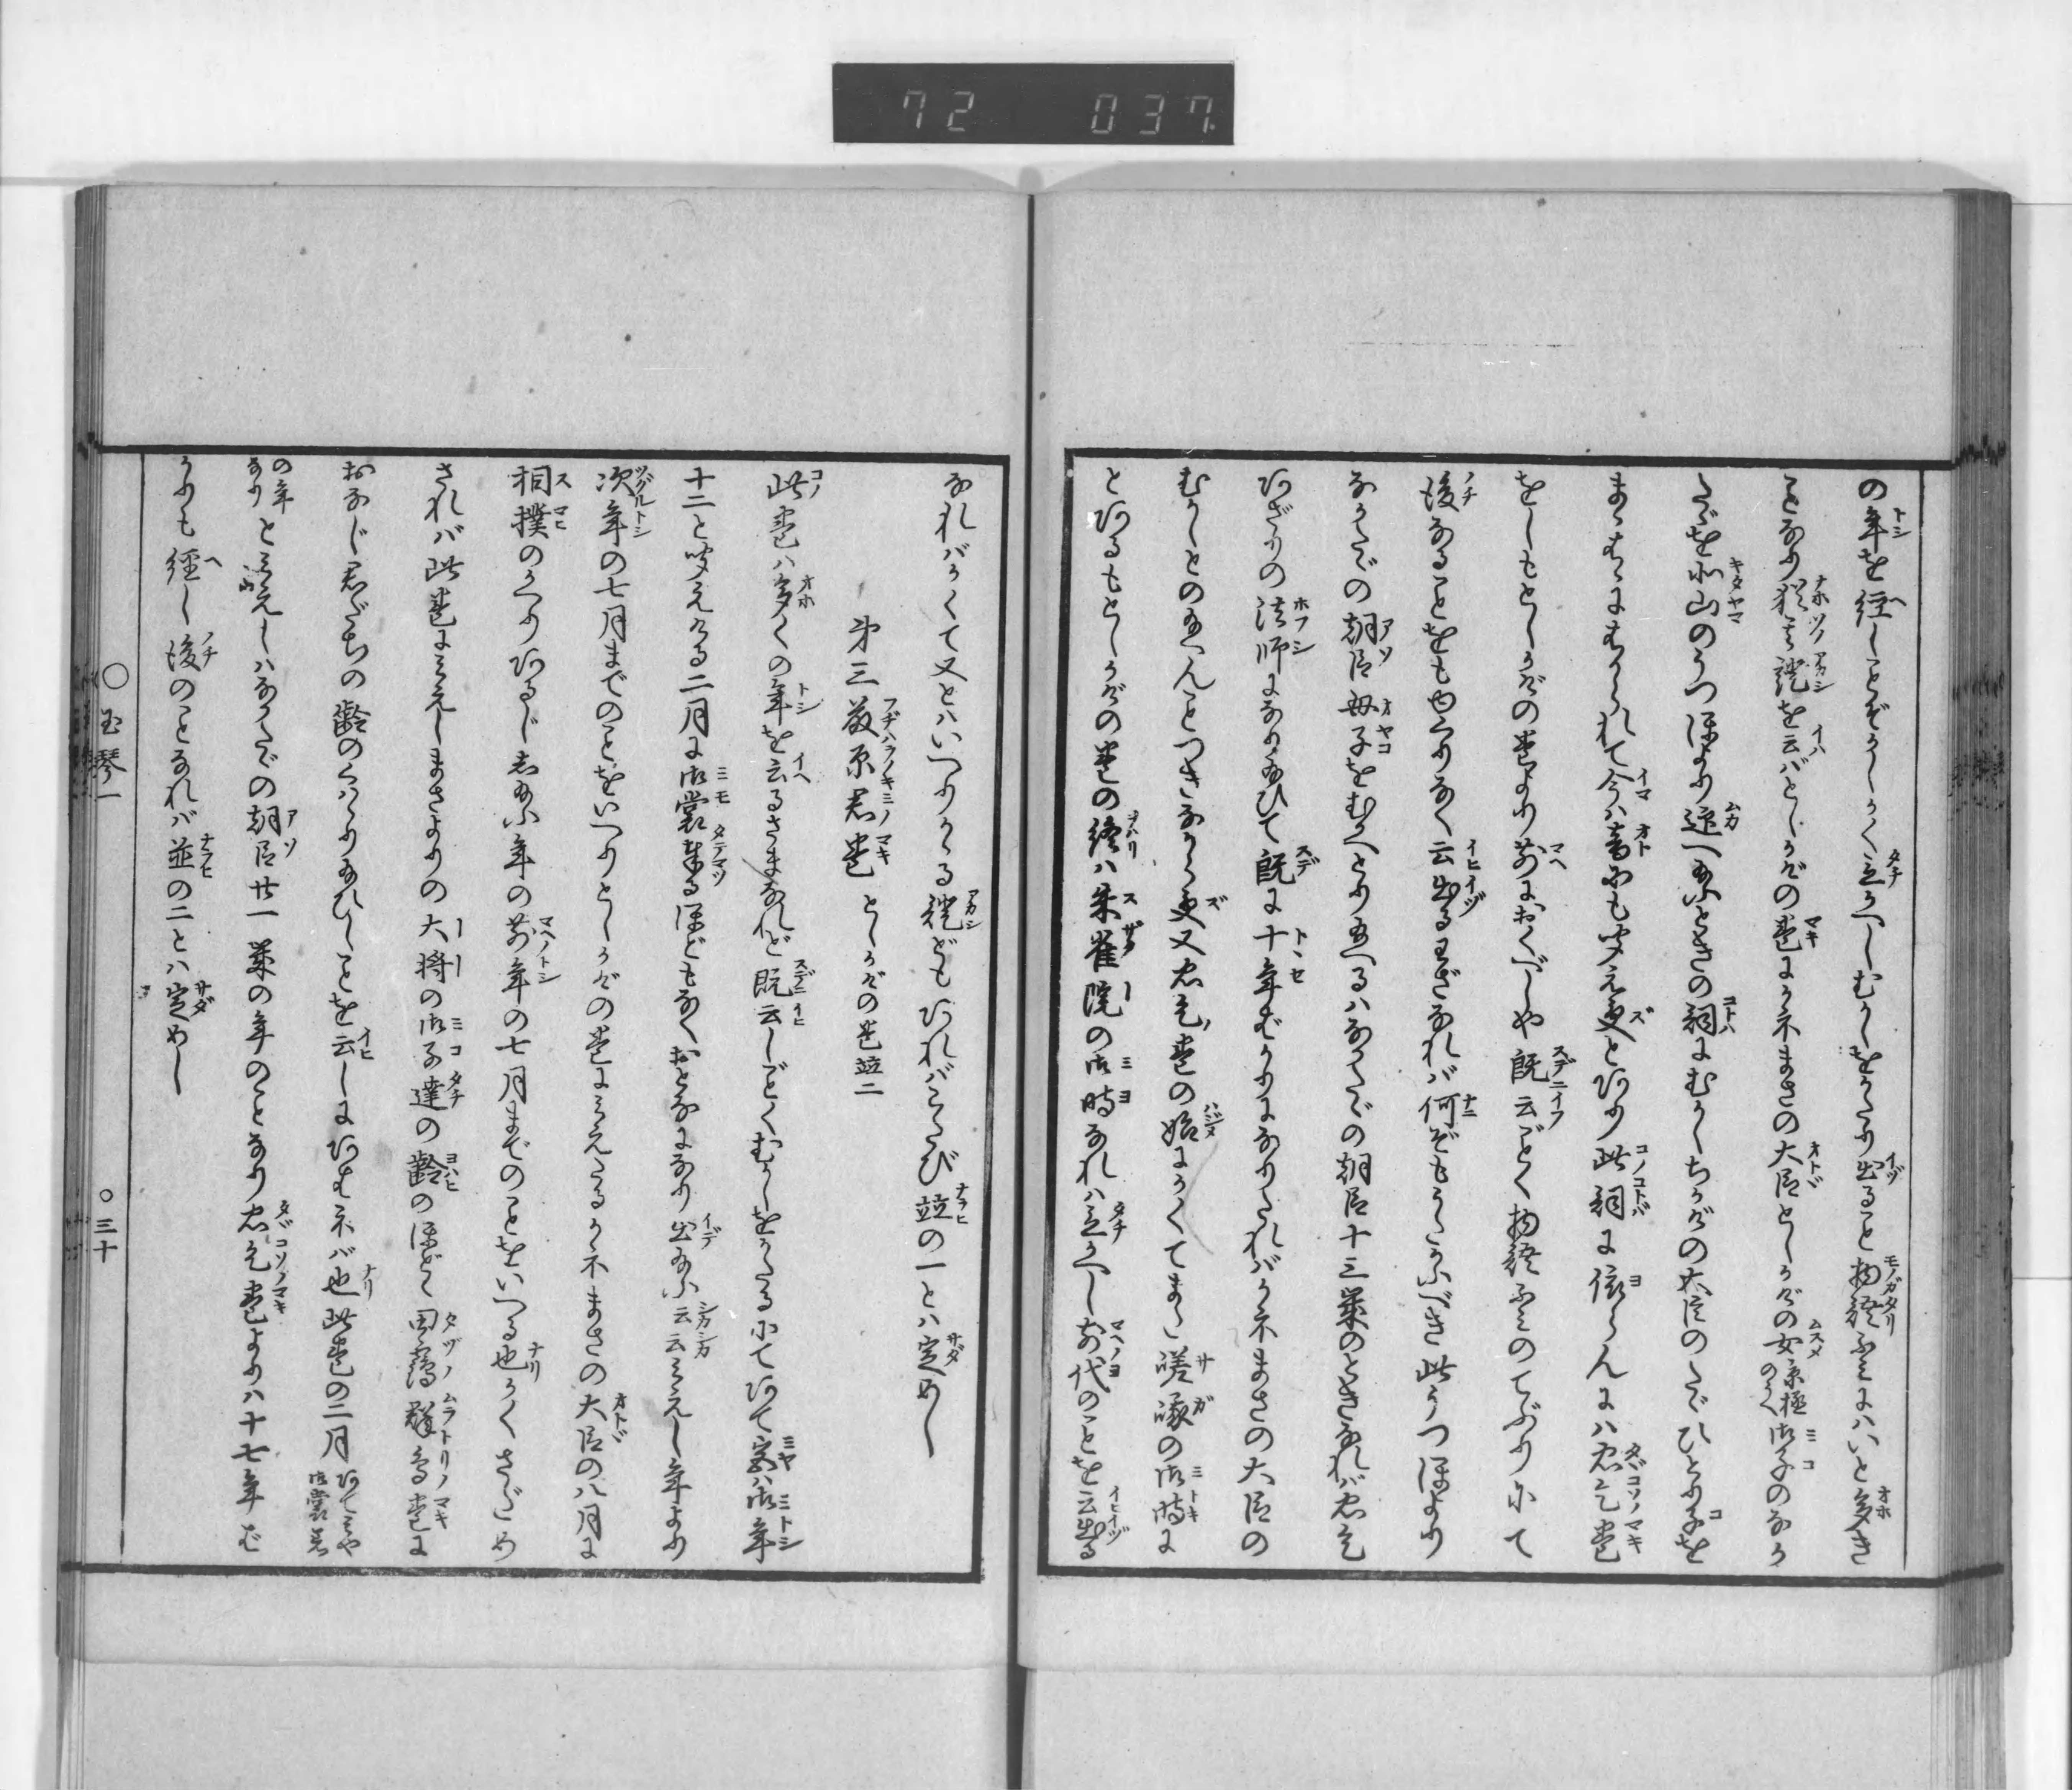 72 037
の年を經しことぞかしかく立かへしむかしをかたり出ること物語ぶみにハいと多き
ことなり猶其證を云バとしかげの巻にかネまさの大臣としかげの女京極のうへ御子のなか
たゞを北山のうつほより迎へ給ふときの詞にむかしちかげの大臣のたゞひとり子を
まゝはゝにはかられて今ハ音にも聞えずとあり此詞に依らんにハ忠こその巻
をしもとしかげの巻より前におくべしや既云ごとく物語ぶみのてぶりにて
後なることをもゆくりなく云出るわざなれバ何ぞもうたがふべき此うつほより
なかたゞの朝臣母子をむかへとり給へるハなかたゞの朝臣十三葉のときなれバ忠こそ
あざりの法師になり給ひて既に十年ばかりになりたれバかネまさの大臣の
むかしとのたまへんことつきなからず又忠こその巻の始にかくてまた嵯峨の御時に
とあるもとしかげの巻の終ハ朱雀院の御時なれハ立かへし前代のことを云出る
なれバかくて又とハいへりかゝる證どもあれバこたび竝の一とハ定めし
第三藤原君巻 としかげの巻竝二
此巻ハ多くの年を云るさまなれど既云しごとくむかしをかたるにてあて宮ハ御年
十二と聞えける二月に御裳奉るほどもなくおとなになり出給ふ云云みえし年より
次年の七月までのことをいへりとしかげの巻にみえたるかネまさの大臣の八月に
相撲のかへりあるじし給ふ年の前年の七月までのことをいへる也かくさだめ
されバ此巻にみえしまさよりの大将の御子達の齢のほどゝ田鶴群鳥巻に
おなじ君だちの齢のくはゝり給ひしことを云しにあはネバ也此巻の二月あてみや御裳着
の年なりとみえしハなかたゞの朝臣廿一葉の年のことなり忠こその巻よりハ十七年ば
かりも經し後のことなれバ竝の二とハ定めし
○玉琴一 ○三十